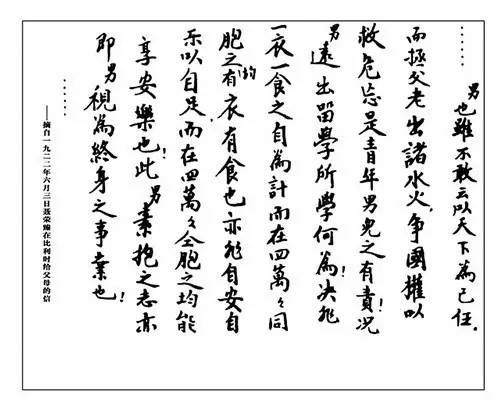 ……
男也雖不敢云以天下為己任，
而拯父老出諸水火，争國權以
救危忘是青年男兒之有責！況
男遠出留學所學何為！决非
一衣一食之自為計而在四萬々同
胞之均有衣有食也亦非自安自
乐以自足而在四萬々仝胞之均能
享安樂也！此男素抱之志亦
即男視為終身之事業也！
……
——摘自一九二二年六月三日聂荣臻在比利时给父母的信